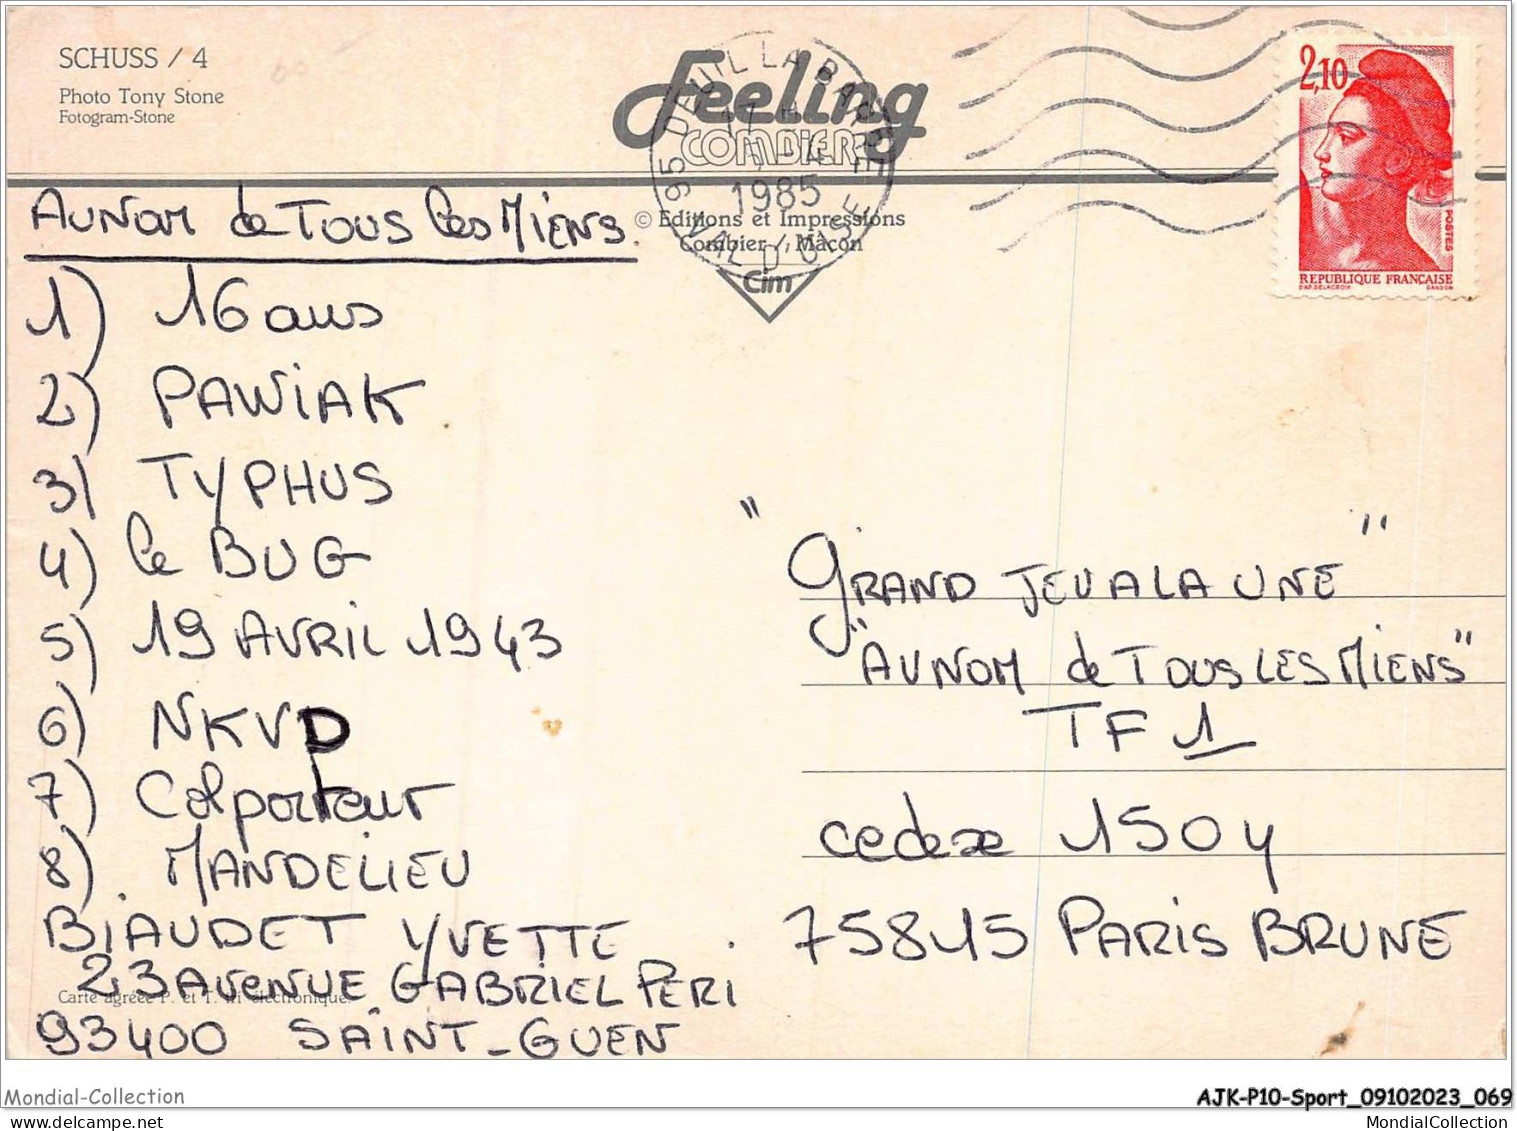 SCHUSS / 4
Photo Tony Stone
Fotogram-Stone
Feeling
COMBIER
95 DEUIL LA BARRE
17 H
1985
VAL D'OISE
© Editions et Impressions
Combier - Mâcon
Cim
2,10
POSTES
REPUBLIQUE FRANÇAISE
D'AP. DELACROIX GANDON
AUNOM de TOUS les MiENS.
1) 16 ans
2) PAWiAK
3) TYPHUS
4) le BUG
5) 19 AVRIL 1943
6) NKVD
7) Colporteur
8) MANDELIEU
BiAUDET YVETTE
23 AVENUE GABRIEL PERI
93400 SAINT-OUEN
Carte agréée P. et T. tri électronique.
"GRAND JEU A LA UNE"
"AUNOM de TOUS LES MIENS"
TF1
cedex 1504
75845 PARiS BRUNE
Mondial-Collection
AJK-P10-Sport_09102023_069
MondialCollection